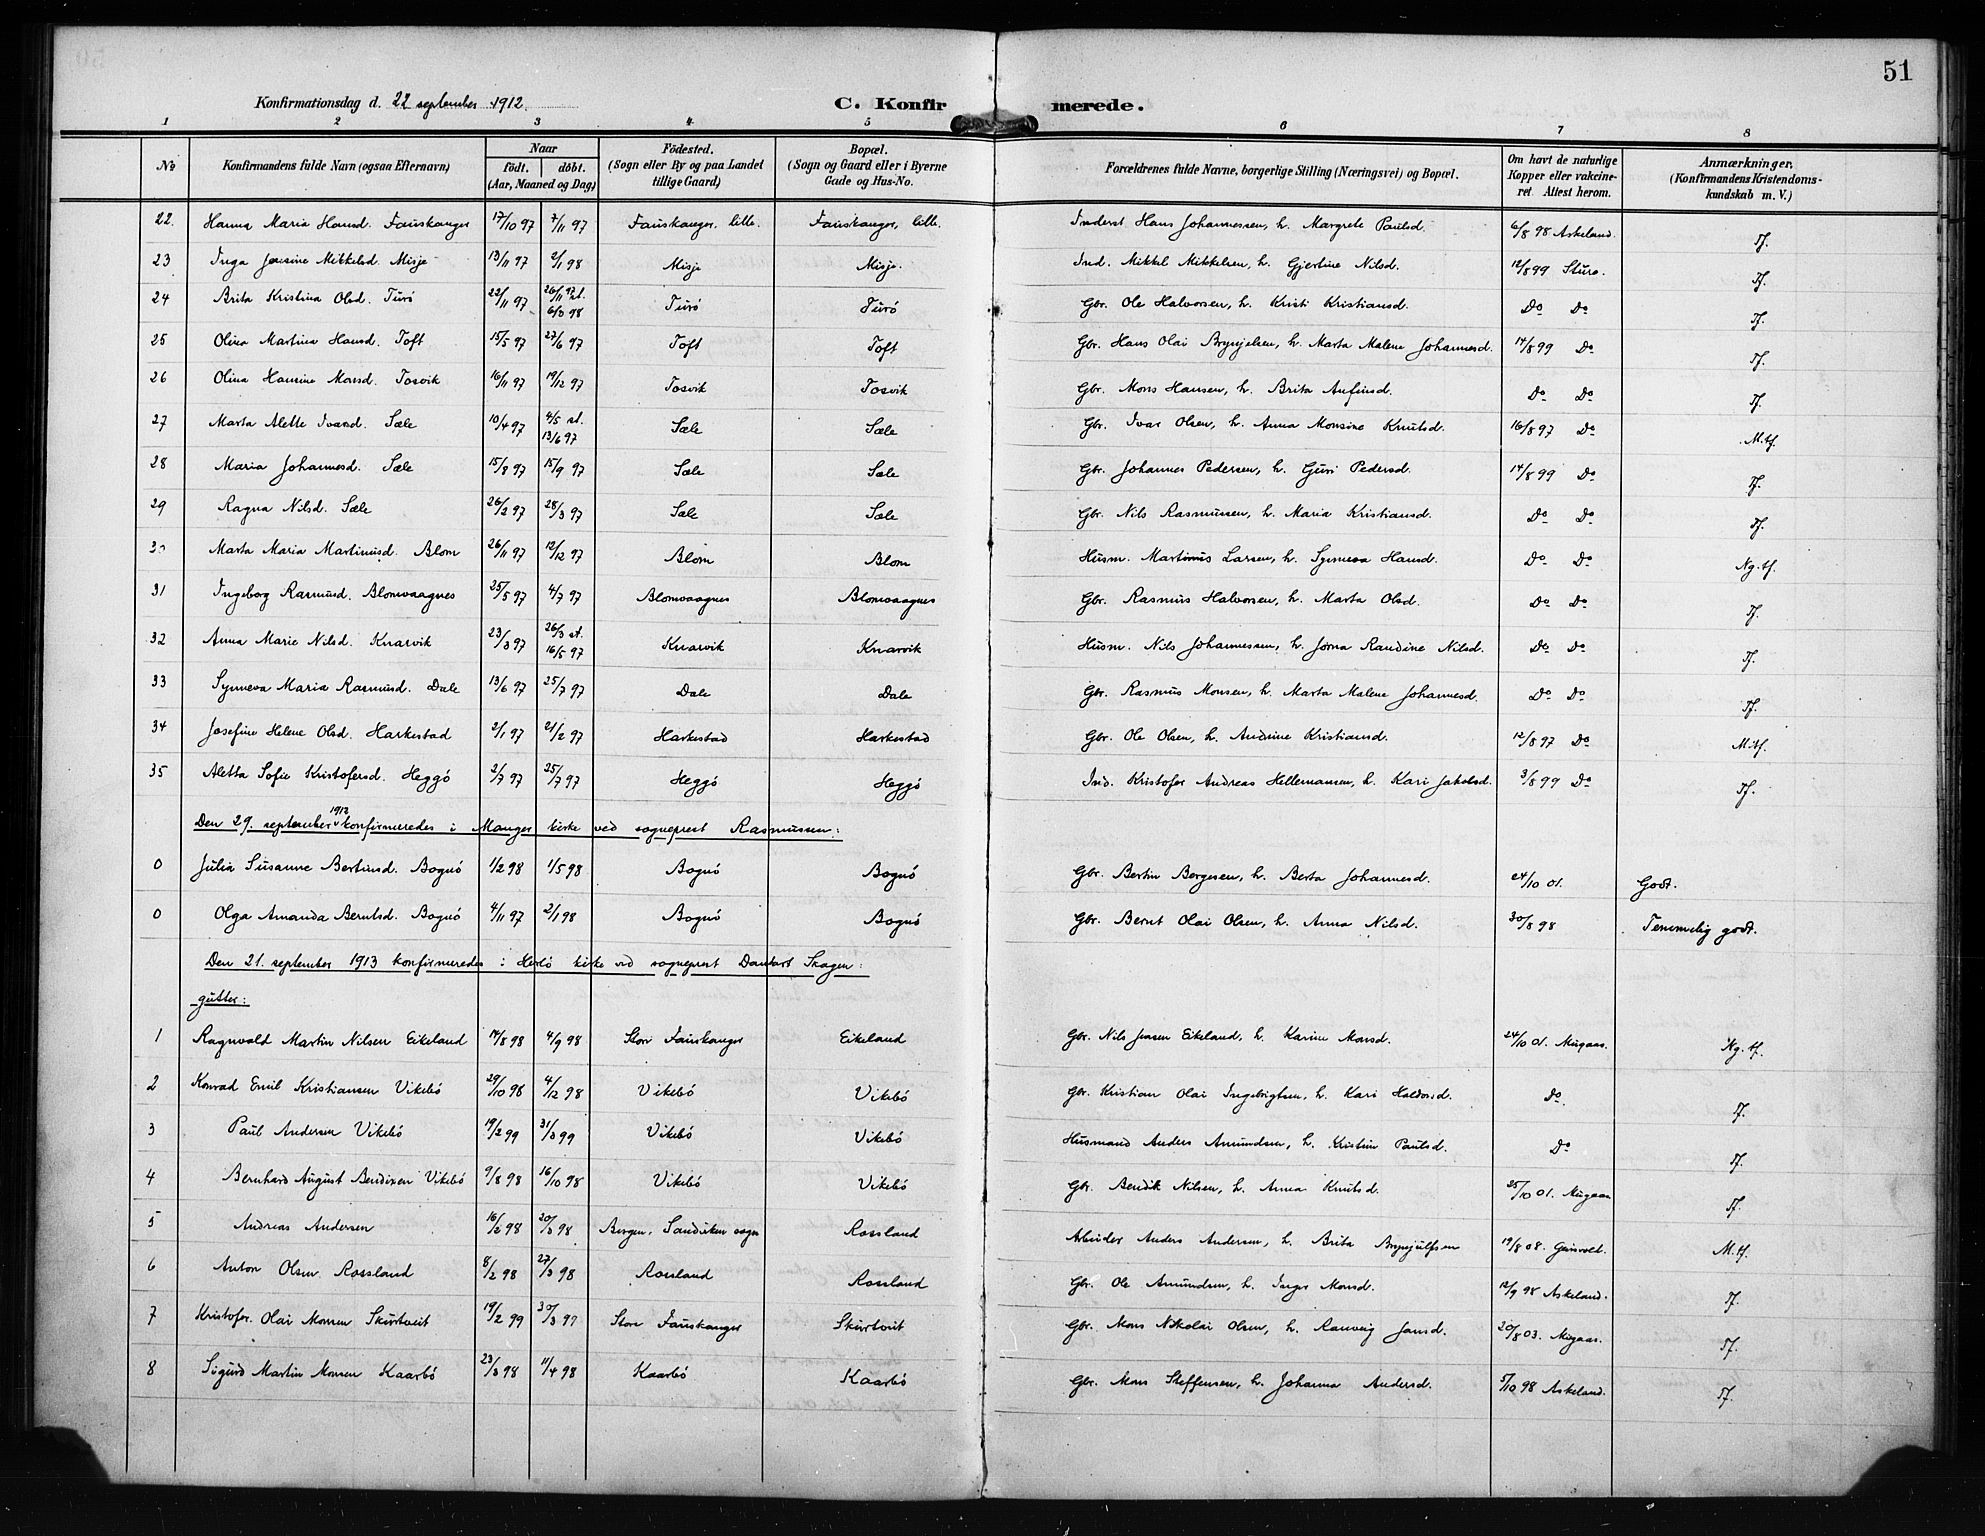 51
Konfirmationsdag d. 22 september 1912.
C. Konfirmerede.
1 2 3 4 5 6 7 8
№ Konfirmandens fulde Navn (ogsaa Efternavn) Naar født. døbt. (Aar, Maaned og Dag) Fødested. (Sogn eller By og paa Landet tillige Gaard) Bopæl. (Sogn og Gaard eller i Byerne Gade og Hus-No. Forældrenes fulde Navne, borgerlige Stilling (Næringsvei) og Bopæl. Om havt de naturlige Kopper eller vakcineret. Attest herom. Anmærkninger. (Konfirmandens Kristendomskundskab m. V.)
22. Hanna Maria Hansd. Fauskanger 17/10 97 7/11 97 Fauskanger, lille. Fauskanger, lille. Inderst Hans Johannessen, h. Margrete Paulsd. 6/8 98 Askeland. Tf.
23 Inga Jensine Mikkelsd. Misje 13/11 97 2/1 98 Misje Misje. Ind. Mikkel Mikkelsen, h. Gjertine Nilsd. 12/8 99 Sture. Tf.
24 Brita Kristina Olsd. Turö 22/11 97 26/11 97 st. 6/3 98 Turö Turö Gbr. Ole Halvorsen, h. Kristi Kristiansd. Do Do Tf.
25 Olina Martina Hansd. Toft 15/5 97 27/6 97 Toft Toft Gbr. Hans Olai Brynjelsen, h. Marta Malene Johannesd. 14/8 99 Do Tf.
26 Olina Hansine Monsd. Tosvik 16/11 97 19/12 97 Tosvik Tosvik Gbr. Mons Hansen, h. Brita Anfinsd. Do Do Tf.
27 Marta Alette Ivarsd. Sæle 10/4 97 4/5 st. 13/6 97 Sæle Sæle Gbr. Ivar Olsen, h. Anna Monsine Knutsd. 16/8 97 Do M.tf.
28 Maria Johannesd. Sæle 15/8 97 15/9 97 Sæle Sæle Gbr. Johannes Pedersen, h. Guri Pedersd. 14/8 99 Do Tf.
29 Ragna Nilsd. Sæle 26/2 97 28/3 97 Sæle Sæle Gbr. Nils Rasmussen, h. Maria Kristiansd. Do Do Tf.
30 Marta Maria Martinusd. Blom 26/11 97 12/12 97 Blom Blom Husm. Martinus Larsen, h. Synneva Hansd. Do Do Ng.tf.
31 Ingeborg Rasmusd. Blomvaagnes 25/5 97 4/7 97 Blomvaagnes Blomvaagnes Gbr. Rasmus Halvorsen, h. Marta Olsd. Do Do Tf.
32 Anna Marie Nilsd. Knarvik 23/3 97 26/3 st. 16/5 97 Knarvik Knarvik Husm. Nils Johannessen, h. Jorna Randine Nilsd. Do Do Tf.
33 Synneva Maria Rasmusd. Dale 13/6 97 25/7 97 Dale Dale Gbr. Rasmus Monsen, h. Marta Malene Johannesd. Do Do Tf.
34 Josefine Helene Olsd. Harkestad 2/1 97 21/2 97 Harkestad Harkestad Gbr. Ole Olsen, h. Andrine Kristiansd. 12/8 97 Do M.tf.
35 Aletta Sofie Kristofersd. Heggö 2/7 97 25/7 97 Heggö Heggö Ind. Kristofer Andreas Hellemansen, h. Kari Jakobsd. 3/8 99 Do Tf.
Den 29. september 1912 konfirmeredes i Manger kirke ved sogneprest Rasmussen:
0 Julia Susanne Bertinsd. Bognö 1/2 98 1/5 98 Bognö Bognö Gbr. Bertin Børgesen, h. Berta Johannesd. 24/10 01. Godt.
0 Olga Amanda Berntsd. Bognö 4/11 97 2/1 98 Bognö Bognö Gbr. Bernt Olai Olsen, h. Anna Nilsd. 30/8 98 Temmelig godt.
Den 21. september 1913 konfirmeredes i Herlö kirke ved sogneprest Dankert Skagen:
gutter:
1 Ragnvald Martin Nilsen Eikeland 14/8 98 4/9 98 Store Fauskanger Eikeland Gbr. Nils Jensen Eikeland, h. Karine Monsd. 24/10 01. Mugaas. Ng.tf.
2 Konrad Emil Kristiansen Vikebö 29/10 98 4/12 98 Vikebö Vikebö Gbr. Kristian Olai Ingebrigtsen, h. Kari Haldorsd. Do. Tf.
3 Paul Andersen Vikebö 19/2 99 31/3 99 Vikebö Vikebö Husmand Anders Amundsen, h. Kristin Paulsd. Do Tf.
4 Bernhard August Bendixen Vikebö 9/8 98 16/10 98 Vikebö Vikebö Gbr. Bendik Nilsen, h. Anna Knutsd. 25/10 01. Mugaas Tf.
5 Andreas Andersen 16/2 98 20/3 98 Bergen, Sandviken sogn Rossland Arbeider Anders Andersen, h. Brita Brynjulfsen 19/8 08. M.tf.
6 Anton Olsen Rossland 8/2 98 27/3 98 Rossland Rossland Gbr. Ole Amundsen, h. Inger Monsd. 12/9 98 Askeland. Tf.
7 Kristofer Olai Monsen Skurtveit 19/2 99 30/3 99 Store Fauskanger Skurtveit Gbr. Mons Nikolai Olsen, h. Ranveig Jansd. 20/8 03. Mugaas. Tf.
8 Sigurd Martin Monsen Kaarbö 23/3 98 11/4 98 Kaarbö Kaarbö Gbr. Mons Steffensen, h. Johanna Andersd. 5/10 98 Askeland. Tf.